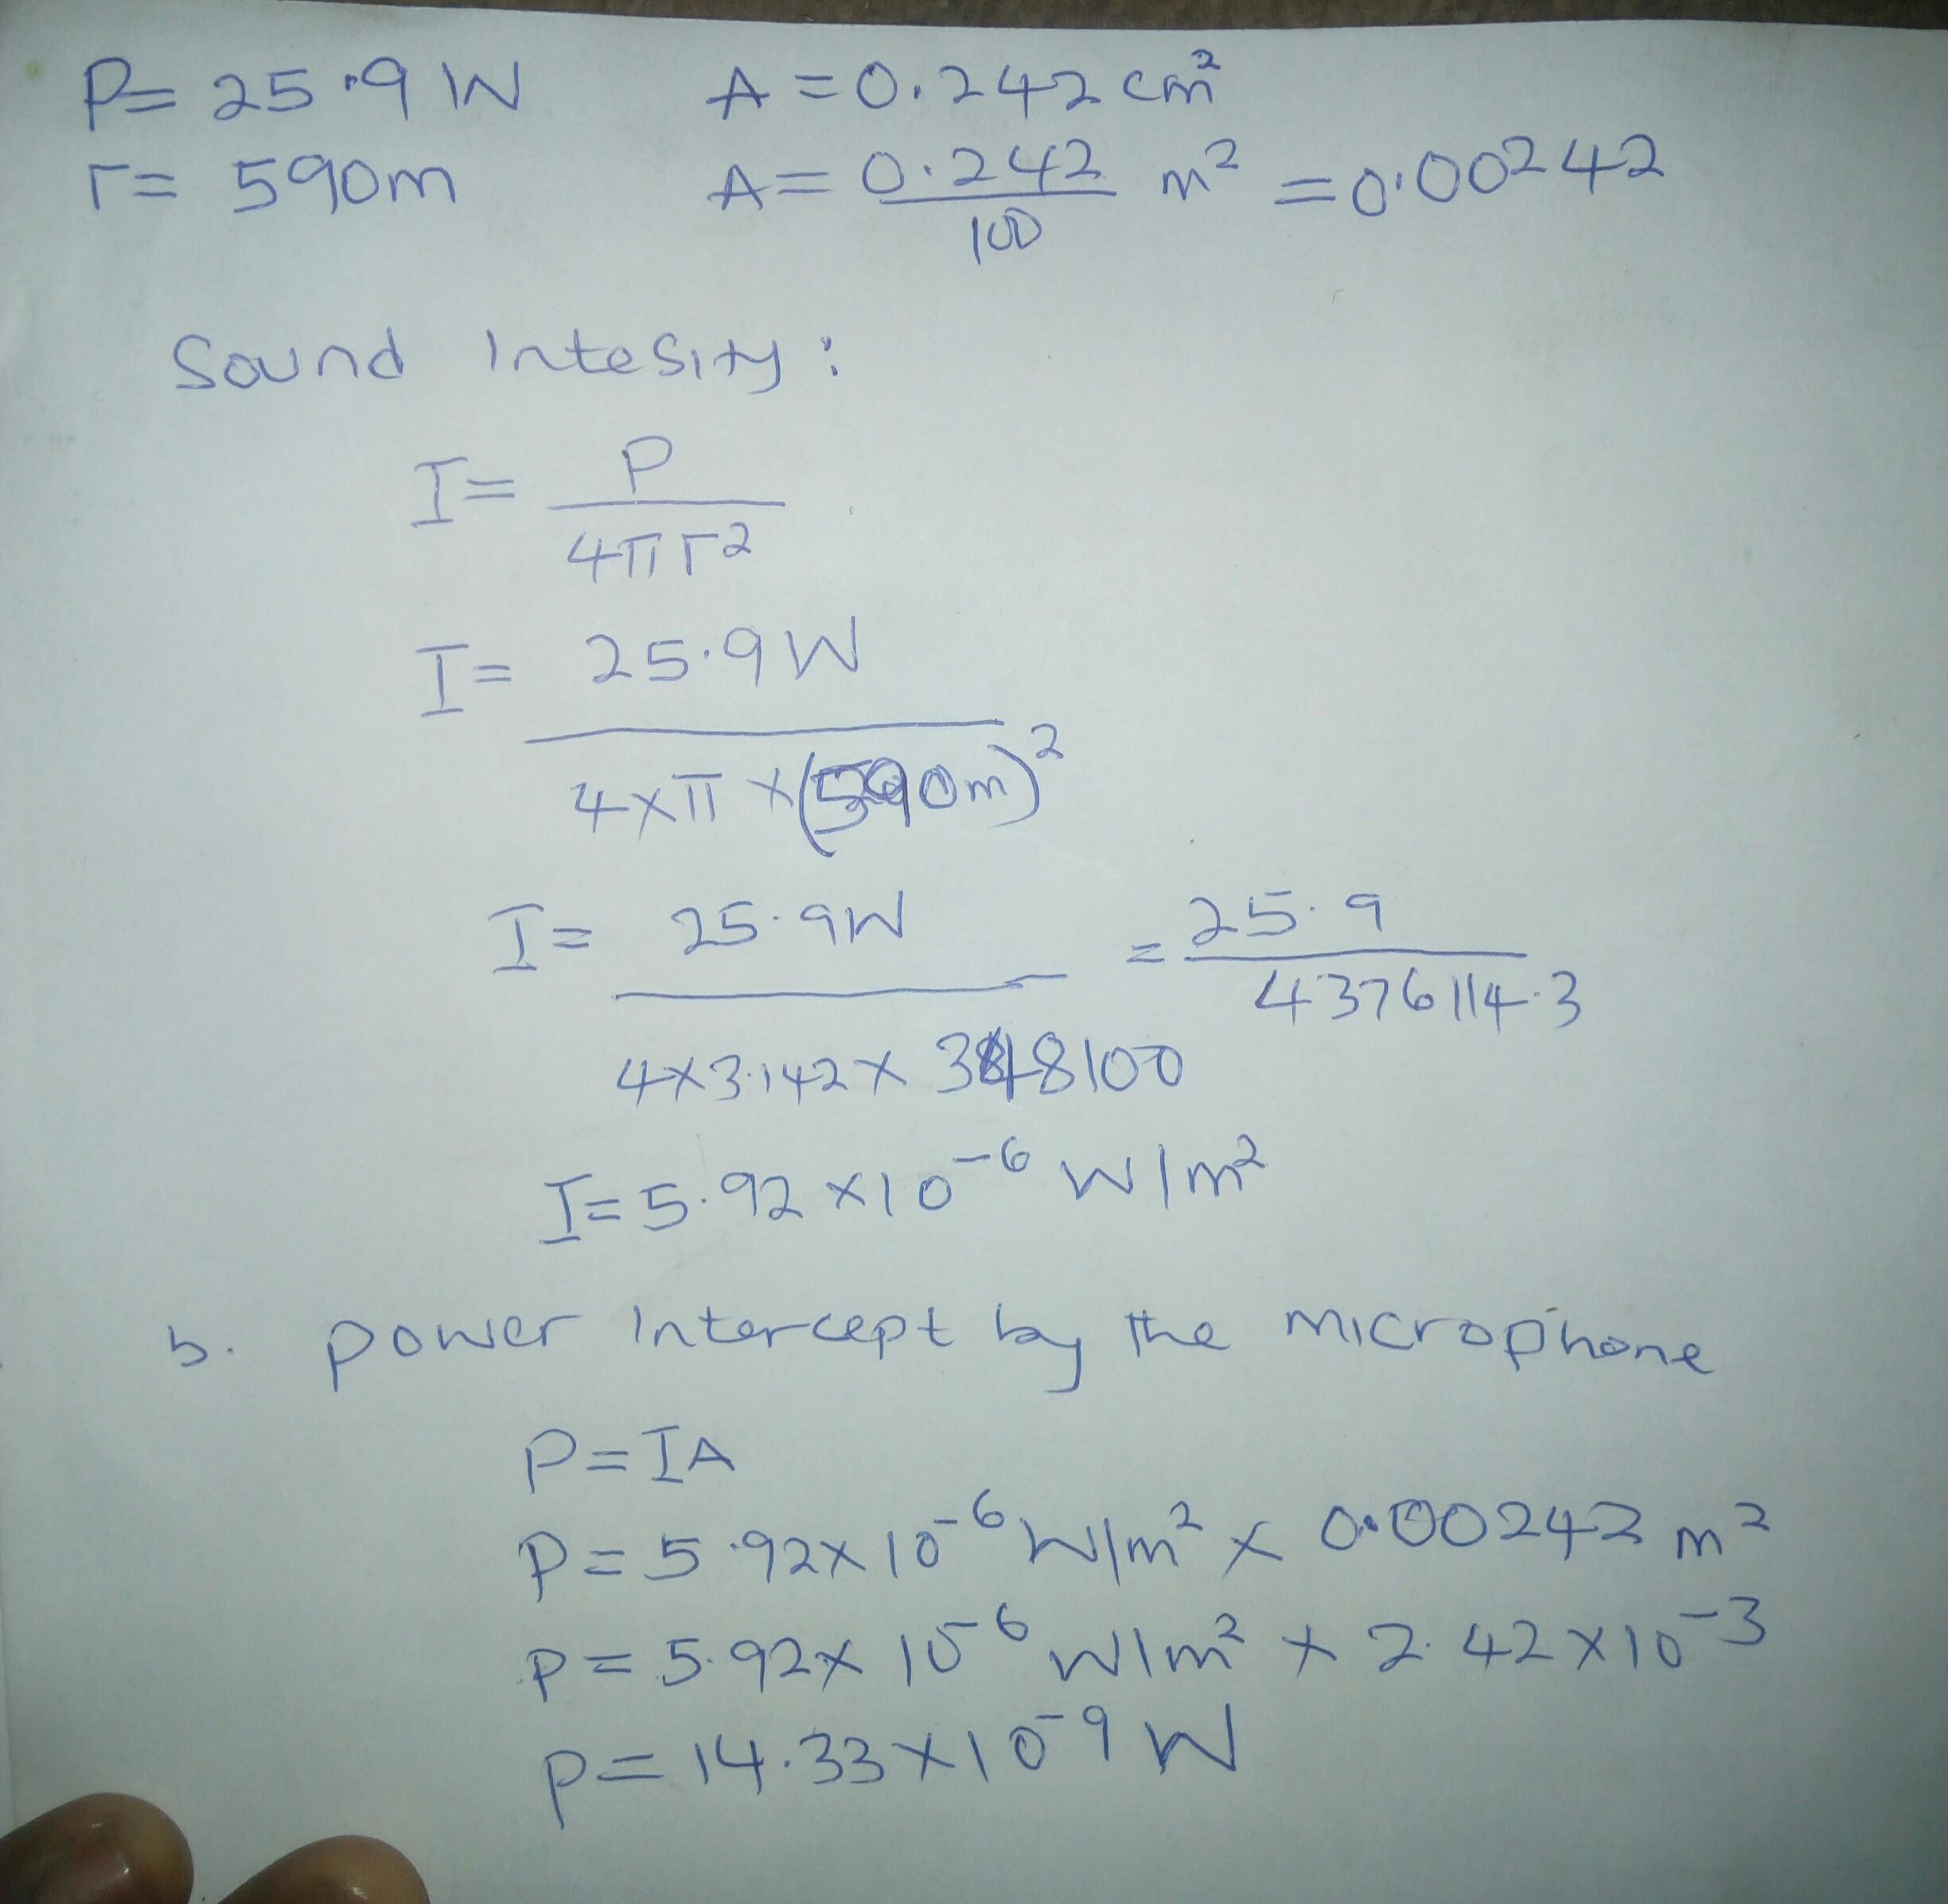 P= 25.9 W A = 0.242 cm²
r= 590m A= 0.242/100 m² = 0.00242
Sound Intesity:
I= P/4πr²
I= 25.9W/4×π×(590m)²
I= 25.9W/4×3.142×348100 = 25.9/4376114.3
I= 5.92 ×10⁻⁶ W/m²
b. power Intercept by the microphone
P= IA
P= 5.92×10⁻⁶ W/m² × 0.00242 m²
P= 5.92× 10⁻⁶ W/m² × 2.42×10⁻³
P= 14.33×10⁻⁹ W